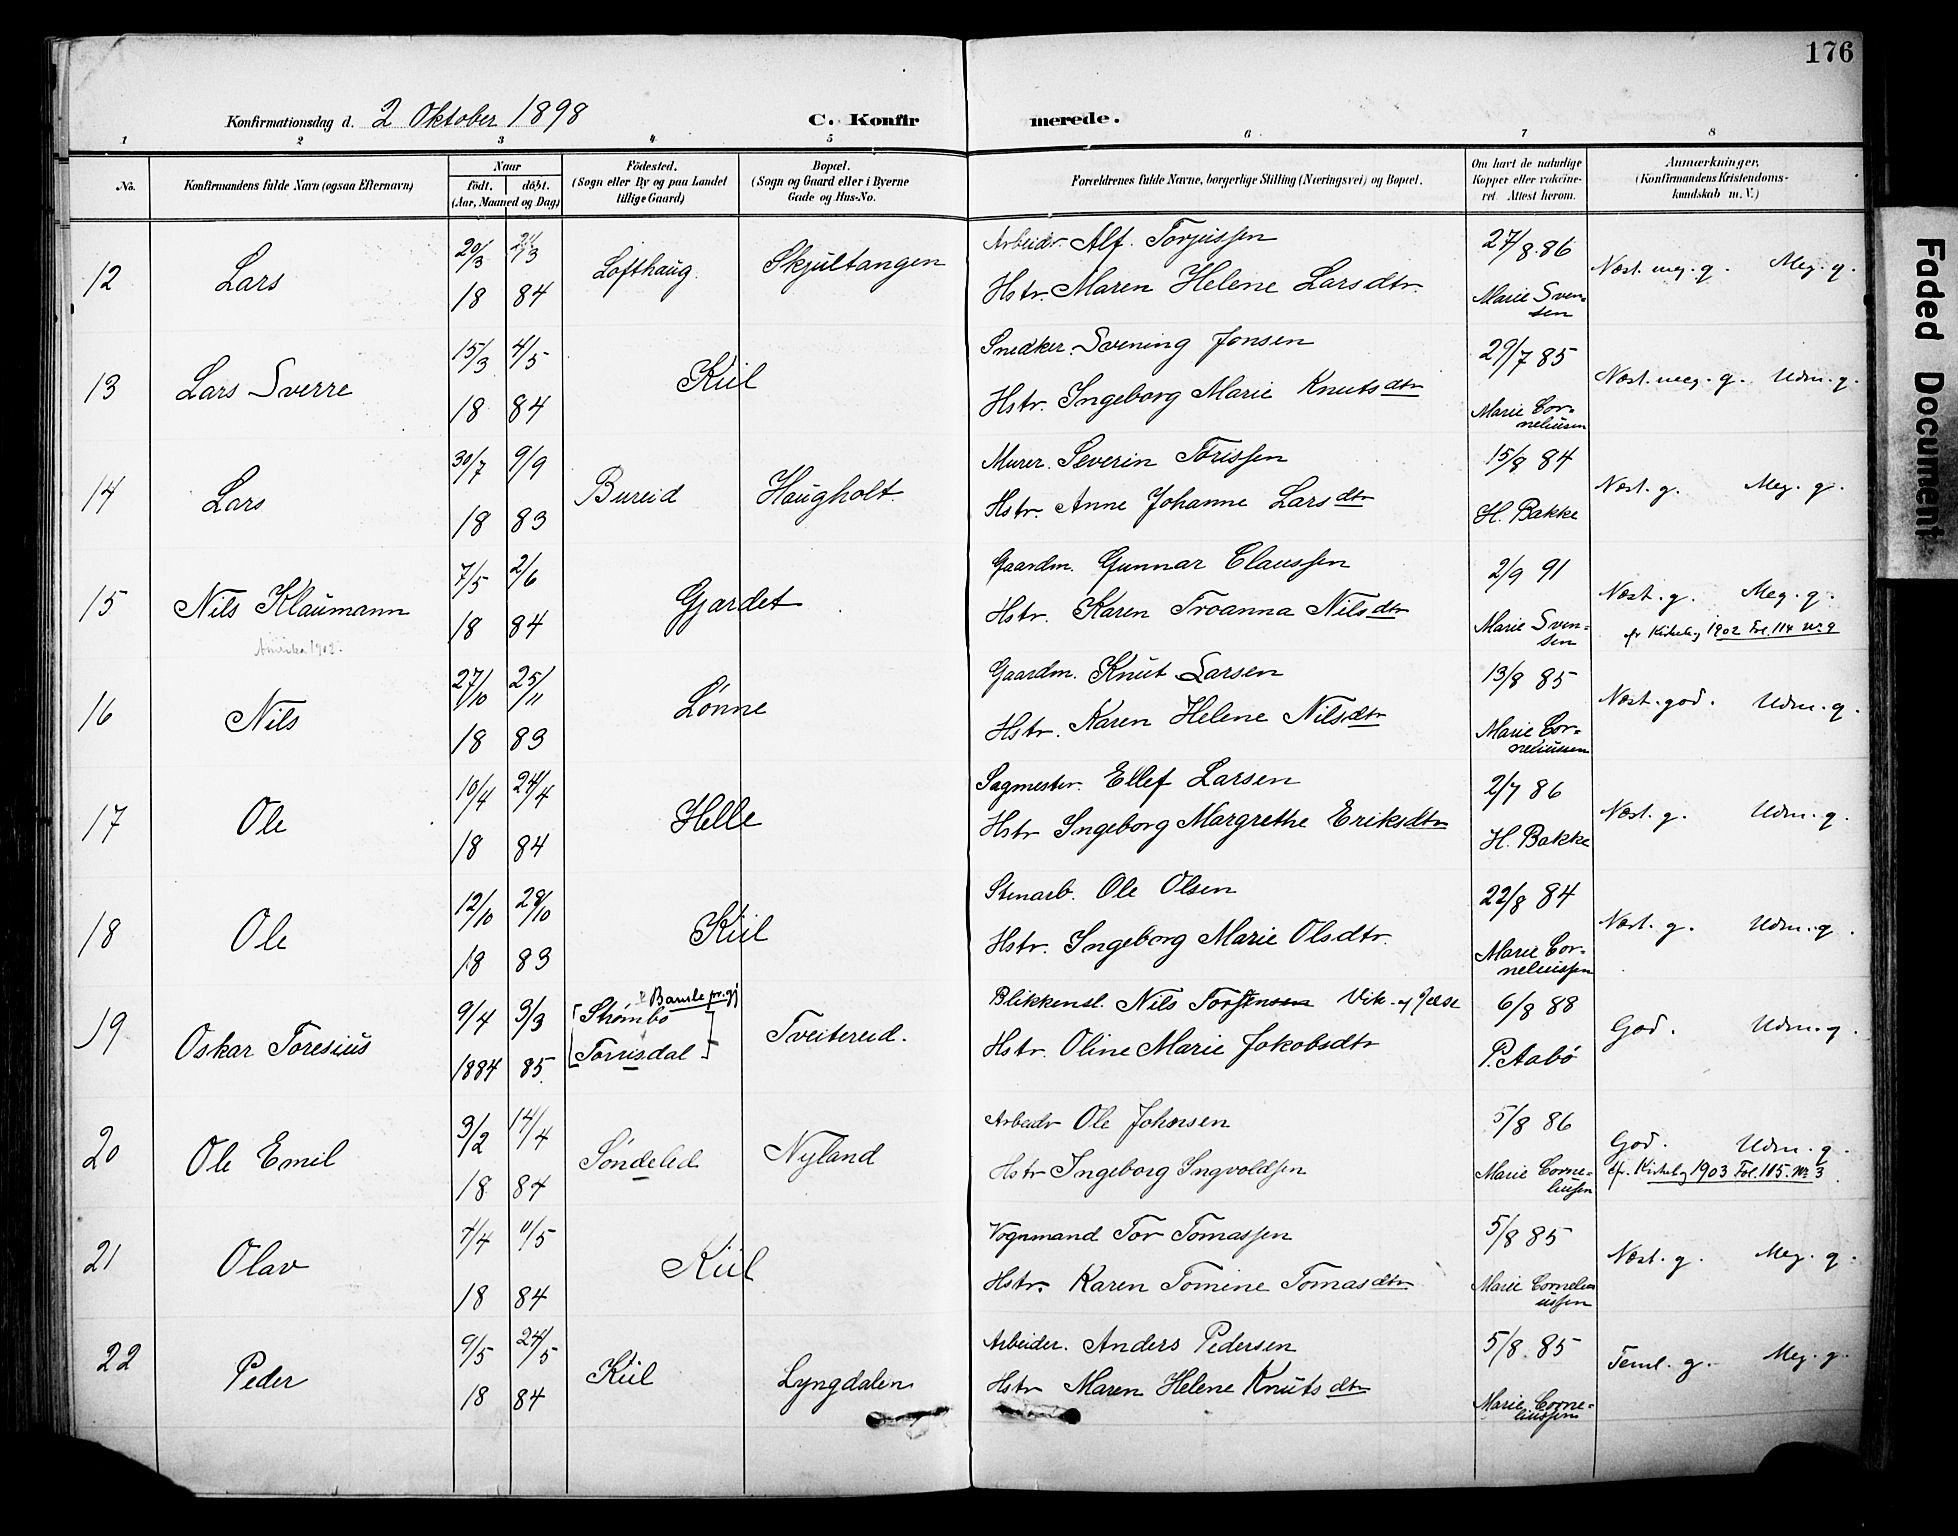 176
Konfirmationsdag d. 2 Oktober 1898
C. Konfirmerede.
1 2 3 4 5 6 7 8
No.
Konfirmandens fulde Navn (ogsaa Efternavn)
Naar
født. døbt.
(Aar, Maaned og Dag)
Fødested.
(Sogn eller By og paa Landet
tillige Gaard)
Bopæl.
(Sogn og Gaard eller i Byerne
Gade og Hus-No.
Forældrenes fulde Navne, borgerlige Stilling (Næringsvei) og Bopæl.
Om havt de naturlige
Kopper eller vakcine-
ret. Attest herom.
Anmærkninger,
(Konfirmandens Kristendoms-
kundskab m. V.)
12 Lars 20/3 18 84 Lofthaug Skjultangen
Arbeidr Alf. Torjussen 27/8 86 Næst. meg. g. Meg. g.
Hstr. Maren Helene Larsdtr. Marie Sven-
sen
13 Lars Sverre 15/3 4/5 18 84 Kiil
Snedker. Svening Jonsen 29/7 85 Næst. meg. g. Udm. g.
Hstr. Ingeborg Marie Knutsdtr Marie Cor-
neliusen
14 Lars 30/7 9/9 18 83 Bureid Haugholt
Murer. Severin Torissen 15/8 84 Næst. g. Meg. g.
Hstr. Anne Johanne Larsdtr H. Bakke
15 Nils Klaumann 7/5 2/6 18 84 Gjardet
Amerika 1903.
Gaardm. Gunnar Claussen 2/9 91 Næst. g. Meg. g.
Hstr. Karen Troanna Nilsdtr Marie Sven-
sen
cfr Kirkebog 1902 Fol. 114 Nr 9
16 Nils 27/10 25/11 18 83 Lønne
Gaardm. Knut Larsen 13/8 85 Næst. god. Udm. g.
Hstr. Karen Helene Nilsdtr Marie Cor-
neliussen
17 Ole 10/4 24/4 18 84 Helle
Sagmester. Ellef Larsen 2/7 86 Næst. g. Udm. g.
Hstr Ingeborg Margrethe Eriksdtr H. Bakke
18 Ole 12/10 28/10 18 83 Kiil
Stenarb. Ole Olsen 22/8 84 Næst. g. Udm. g.
Hstr. Ingeborg Marie Olsdtr. Marie Cor-
neliussen
19 Oskar Toresius 9/4 3/3 1884 85. Bamle pr. gj
[Strømbo
Torrisdal] Tveitereid.
Blikkensl. Nils Torjensen Vik 6/8 88 God. Udm. g.
Hstr. Oline Marie Jakobsdtr P. Aabø
20 Ole Emil 3/2 14/4 18 84 Søndeled Nyland
Arbeidr Ole Johnsen 5/8 86 God. Udm. g.
Hstr Ingeborg Ingvoldsen Marie Corne-
liussen
cfr. Kirkebog 1903 Fol. 115. Nr 3
21 Olav 7/4 11/5 18 84 Kiil
Vognmand Tor Tomassen 5/8 85 Næst. g. Meg. g.
Hstr. Karen Tomine Tomasdtr Marie Corneli
ussen
22 Peder 9/5 24/5 18 84 Kiil Lyngdalen
Arbeider. Anders Pedersen 5/8 85 Teml. g. Meg. g.
Hstr Maren Helene Knutsdtr Marie Corne-
liussen
Faded Document